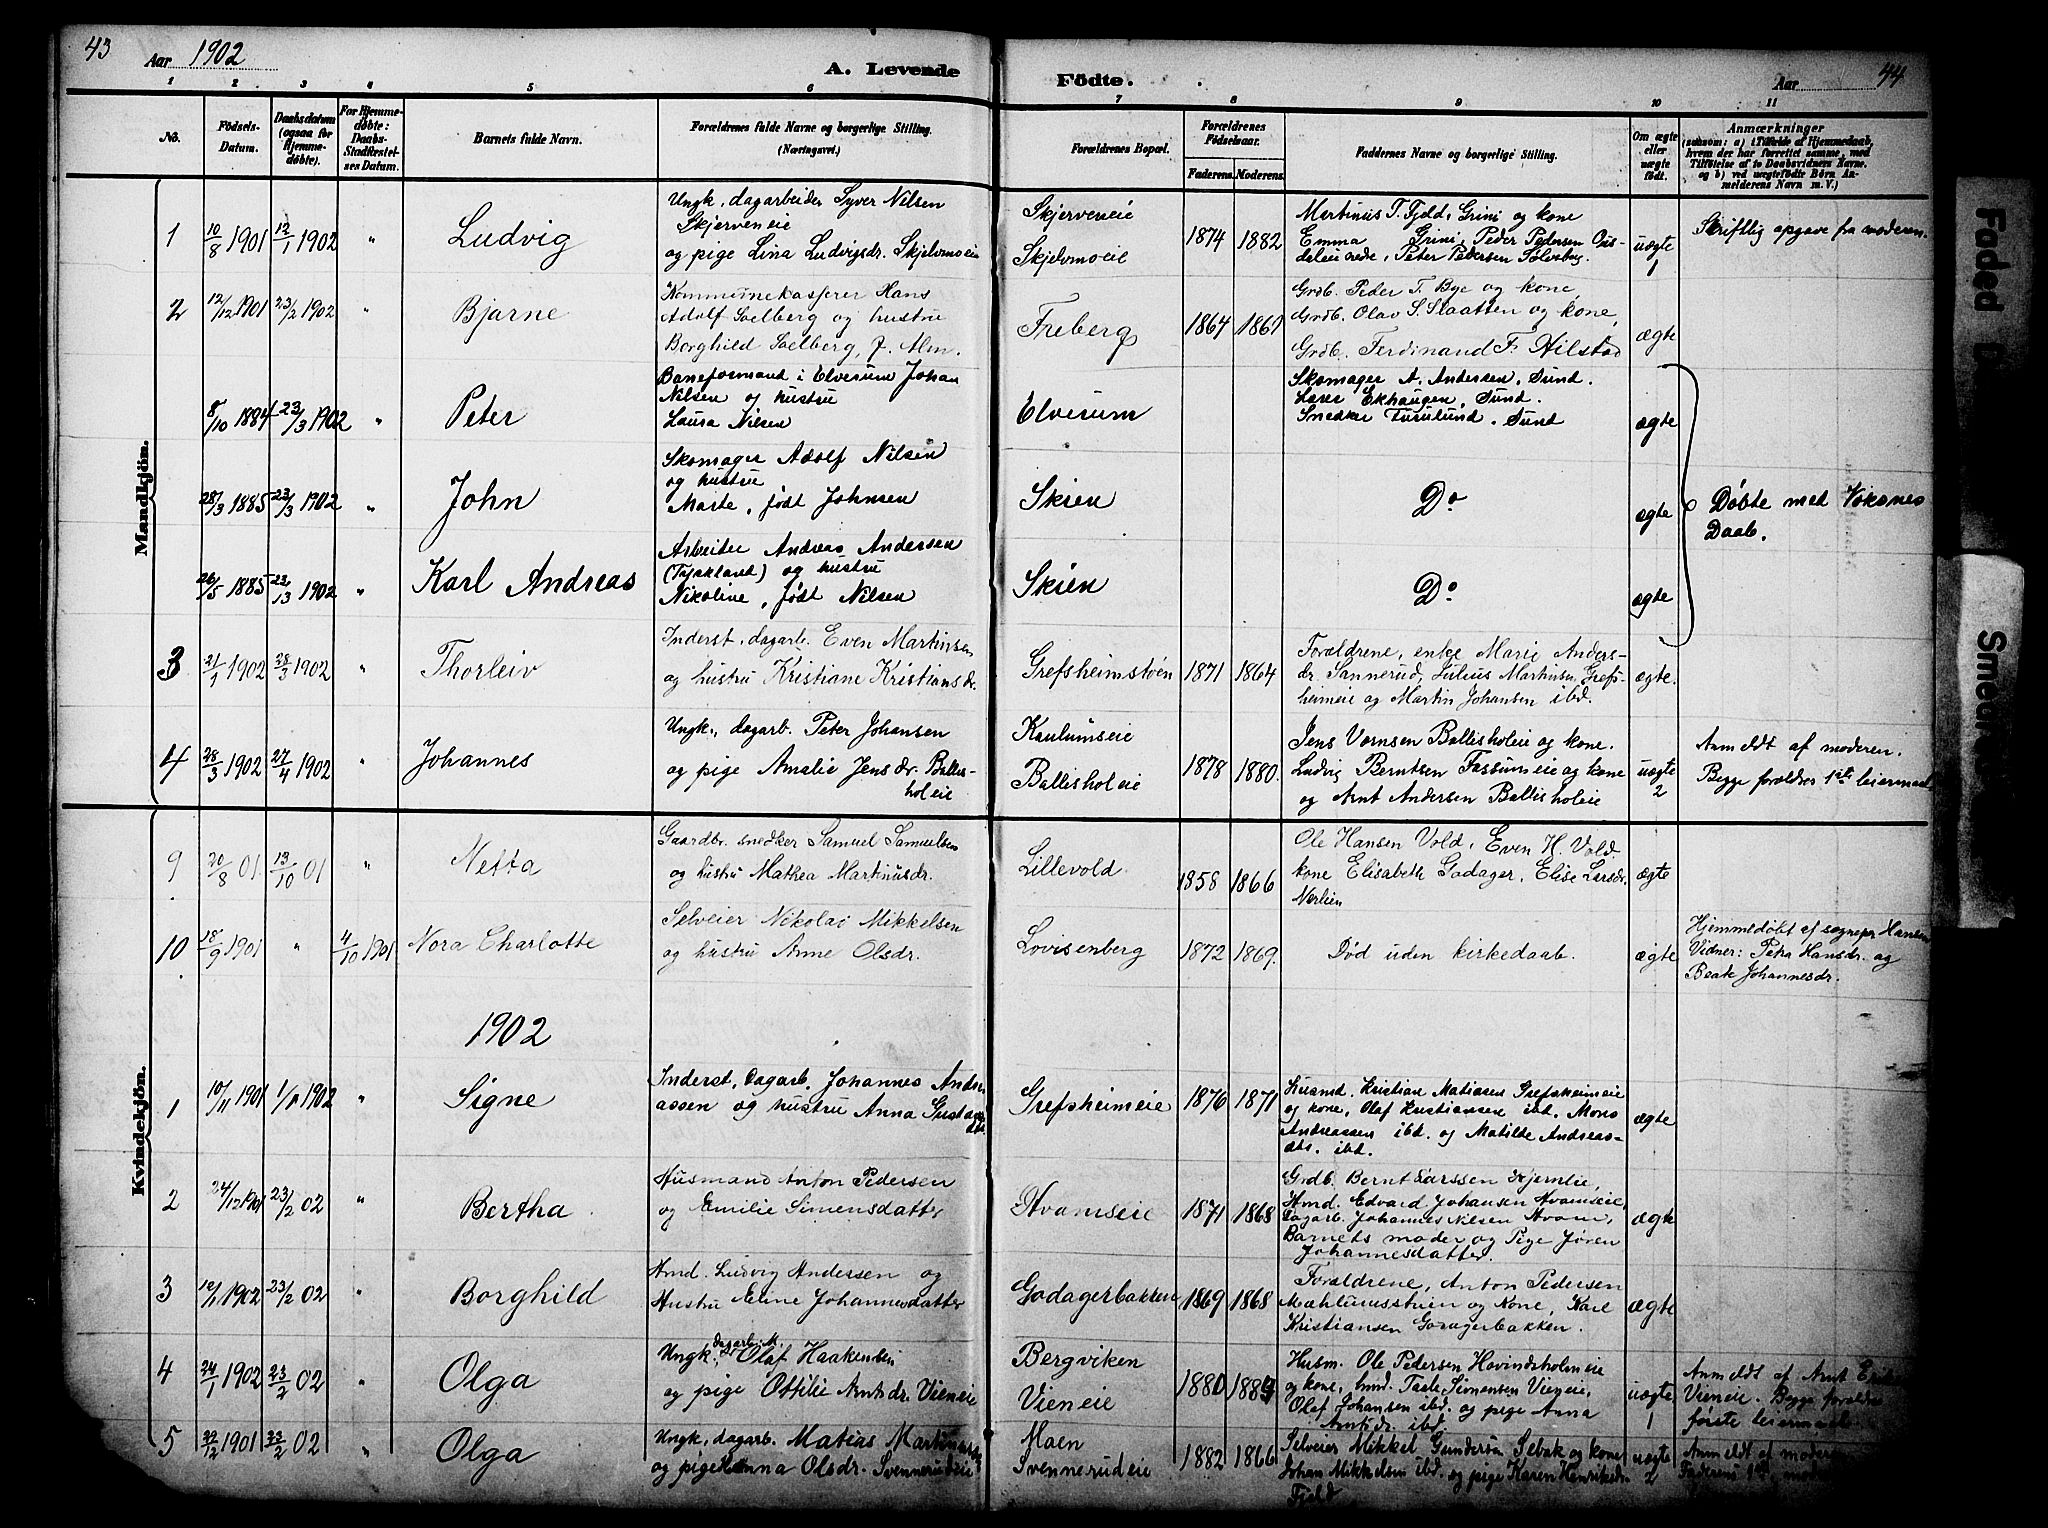 43
Aar 1902
A. Levende
Födte.
Aar
44
1 2 3 4 5 6 7 8 9 10 11
No.
Födsels-
Datum.
Daabsdatum
(ogsaa for
Hjemme-
døbte).
For Hjemme-
døbte:
Daabs-
Stadfæstel-
ses Datum.
Barnets fulde Navn.
Forældrenes fulde Navne og borgerlige Stilling.
(Næringsvei.)
Forældrenes Bopæl.
Forældrenes
Födselsaar.
Faderens. Moderens.
Faddernes Navne og borgerlige Stilling.
Om ægte
eller
uægte
født.
Anmærkninger
(saasom: a) i Tilfælde af Hjemmedaab,
hvem der har forrettet samme, med
Tilføielse af to Daabsvidners Navne.
og b) ved uægtefødte Börn An-
melderens Navn m. V.)
Mandkjön.
1 10/8 1901 12/1 1902 " Ludvig
Ungk. dagarbeider Syver Nilsen
Skjerveneie
og pige Lina Ludvigsdr. Skjelvmoeie
Skjerveneie
Skjelvmoeie
1874 1882
Martinius T. Fjeld, Grini og kone
Emma Grini, Peder Pedersen
Peter Pedersen Solveberg.
uægte
1
Skriftlig opgave fra moderen.
2 12/12 1901 23/2 1902 " Bjarne
Kommunekasserer Hans
Adolf Sælberg og hustru
Borghild Sælberg, f. Alm.
Freberg
1864 1869
Grdb. Peder T. Bye og kone
Grdb. Olav S. Slaatten og kone,
Grdb. Ferdinand F. Hilstad
ægte
8/10 1884 23/3 1902 " Peter
Baneformand i Elverum Johan
Nilsen og hustru
Laura Nilsen
Elverum
Skomager A. Andersen, Sund.
Lærer Ekhaugen, Sund.
Snedker Furulund, Sund
ægte
28/3 1885 23/3 1902 " John
Skomager Adolf Nilsen
og hustru
Marte, født Johnsen
Skien
Do
ægte
Døbte med Voksnes
Daab.
26/5 1885 23/3 1902 " Karl Andreas
Arbeider Andreas Andersen
(Tyskland) og hustru
Nikoline, født Nilsen
Skien
Do
ægte
3 21/1 1902 28/3 1902 " Thorleiv
Inderst, dagarb. Even Martinsen
og hustru Kristiane Kristiansdr.
Grefsheimstøen
1871 1864
Forældrene, enke Marie Anders-
dr. Sannerud, Julius Martinsen Grefs-
heimeie og Martin Johansen ibd.
ægte.
4 28/3 1902 27/4 1902 " Johannes
Ungk., dagarb. Peter Johansen
og pige Amalie Jensdr. Ballis-
holeie
Kaulumseie
Ballisholeie
1878 1880.
Jens Vornsen Ballisholeie og kone.
Ludvig Berntsen Fossumeie og kone
og Arnt Andersen Ballisholeie
uægte
2
Anmeldt af moderen.
Begge forældres 1ste leiermaal
Kvindekjön.
9 20/8 01 13/10 01 " Netta
Gaardbr. snedker Samuel Samuelsen
og hustru Mathea Martinusdr.
Lillevold
1858 1866
Ole Hansen Vold, Even H. Vold.
kone Elisabeth Godager, Elise Larsdr.
Nerlien
ægte
10 18/9 1901 " 4/10 1901 Nora Charlotte
Selveier Nikolai Mikkelsen
og hustru Anne Olsdr.
Lovisenberg
1872 1869.
Død uden kirkedaab.
ægte
Hjemmedøbt af sognepr. Hansen
Vidner: Petra Hansdr. og
Beate Johannesdr.
1902
1 10/11 1901 1/1 1902 " Signe
Inderst, Dagarb. Johannes Andre-
assen og hustru Anna Gustavs-
dtr.
Grefsheimeie
1876 1871
Husmd. Kristian Matiasen Grefsheimeie
og kone, Olaf Kristiansen ibd. Mons
Andreassen ibd. og Matilde Andreas-
dtr. ibd.
ægte
2 24/12 1901 23/2 02 " Bertha.
Husmand Anton Pedersen
og Emilie Simensdatter
Hvamseie
1871 1868
Grdb. Bernt Larssen Hjemlie,
Hmd. Edvard Johansen Hvamseie,
Dagarb. Johannes Nilsen Hvam,
Barnets moder og Pige Jøren
Johannesdatter
ægte
3 12/1 1902 23/2 02 " Borghild
Hmd. Ludvig Andersen og
Hustru Eline Johannesdatter
Godagerbakken
1869 1868
Forældrene, Anton Pedersen
Mæhlumsstuen og Kone, Karl
Kristiansen Godagerbakken.
ægte
4 24/1 1902 23/2 02 " Olga
Ungk. dagarb. Olaf Haakensen
og pige Ottilie Arntsdr. Vieneie
Bergviken
Vieneie
1880 1883
Husm. Ole Pedersen Hovindsholmeie
og kone, hmd. Taale Simensen Vieneie,
Olaf Johansen ibd. og pige Anna
Arntsdr. ibd.
uægte
1
Anmeldt af Arnt
Vieneie. Begge forældres
første leiermaal
5 1901 23/2 02 " Olga
Ungk. dagarb. Matias Martinusen
og pige Anna Olsdr. Svennerudeie
Moen
Svennerudeie
1882 1866
Selveier Mikkel Gundersen Sebak og kone
Johan Mikkelsen ibd. og pige Karen Henriksdr.
Fjeld
uægte
2
Anmeldt af moderen
Faderens 1ste,
Faded
Smeared